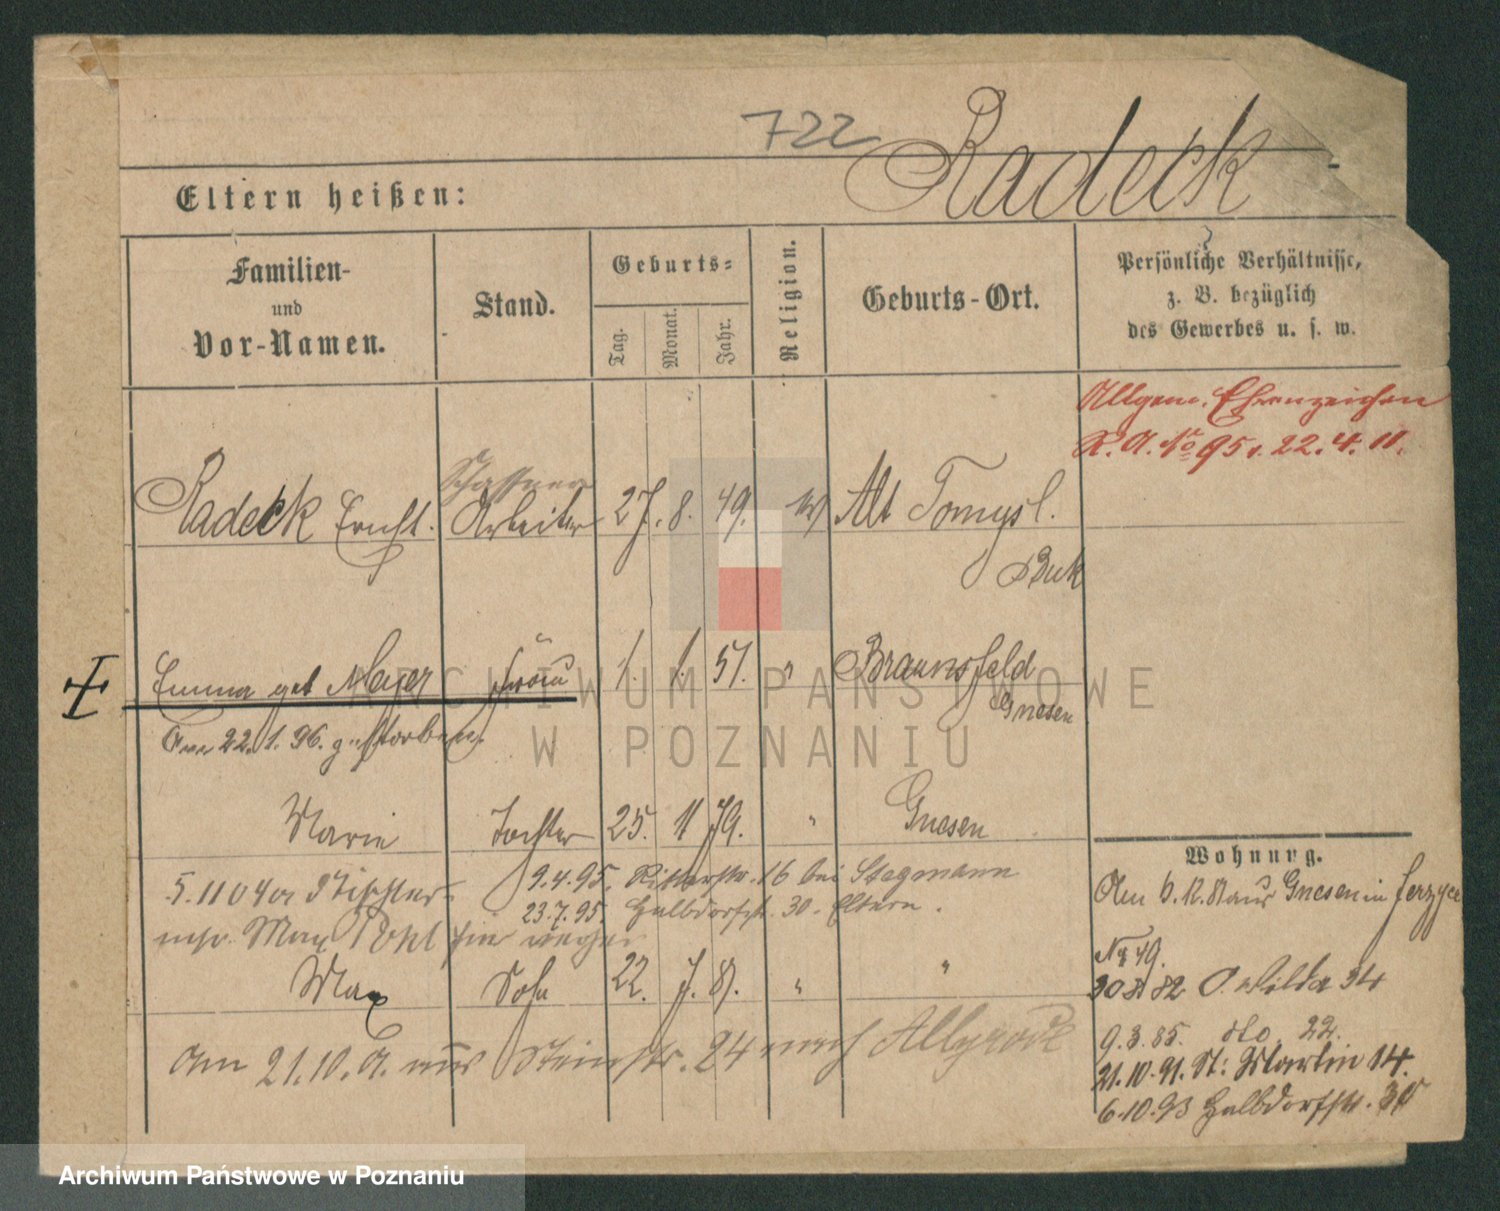 722 Radeck
Eltern heißen:
Familien-
und
Vor-Namen.
Stand.
Geburts-
Tag.
Monat.
Jahr.
Religion.
Geburts-Ort.
Persönliche Verhältnisse,
z. B. bezüglich
des Gewerbes u. s. w.
Allgem. Ehrenzeichen
K. A. No 95 v. 22.4.11.
Schaffner
Radeck Ernst. Arbeiter 27. 8. 49. Alt Tomysl.
Buk
Emma geb Meyer Frau 1. 1. 51. " Braunsfeld
Gnesen
Am 22.1.96. gestorben.
Marie Tochter 25. 11 79. " Gnesen
9.4.95. Ritterstr. 16 bei Stegmann
23.7.95. Halbdorfstr. 30. Eltern.
5.11 04 Tischler
Max Pohl
Max Sohn 22. 7. 81. " "
Am 21.10. 24 nach
Wohnung.
Am 6.12.81 aus Gnesen in Jerzyce
No 49.
82 O. Wilda 34
9.3.85. dto 22.
21.10.91. St: Martin 14.
6.10.93 Halbdorfstr. 30
ARCHIWUM PAŃSTWOWE
W POZNANIU
Archiwum Państwowe w Poznaniu